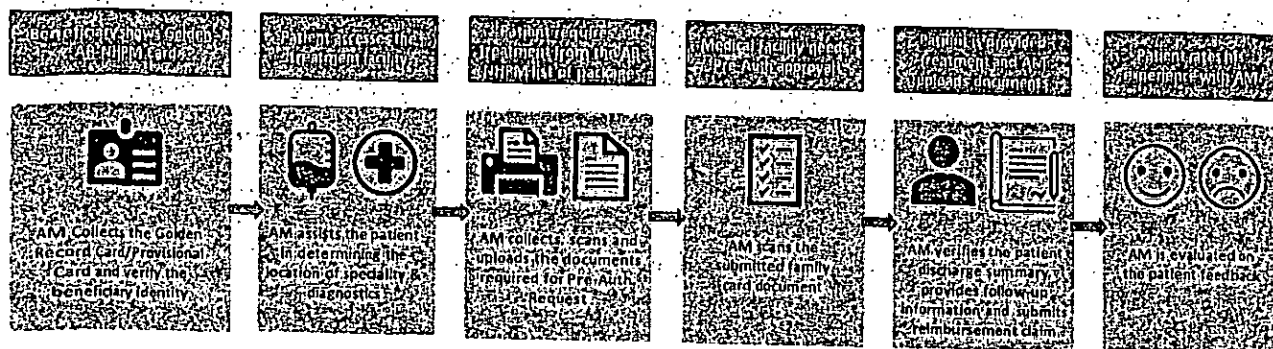 Beneficiary shows Golden
AB-NHPM Card
Patient accesses the
treatment facility
Patient requires a
treatment from the AB
NHPM list of packages
Medical facility needs
Pre-Auth approval
Patient is provided
treatment and AM
uploads documents
Patient rates his
experience with AM
AM Collects the Golden
Record Card/Provisional
Card and verify the
beneficiary identity
AM assists the patient
in determining the
location of speciality &
diagnostics
AM collects, scans and
uploads the documents
required for Pre-Auth
Request
AM scans the
submitted family
card document
AM verifies the patient
discharge summary,
provides follow-up
information and submits
reimbursement claim
AM is evaluated on
the patient feedback